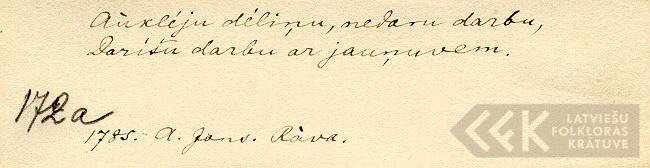 Aūklēju dēliņu, nedaru darbu,
Darišu darbu ar jauņuvem.
172a
1785. A. Jans. Rāva.
LATVIEŠU
FOLKLORAS
KRĀTUVE